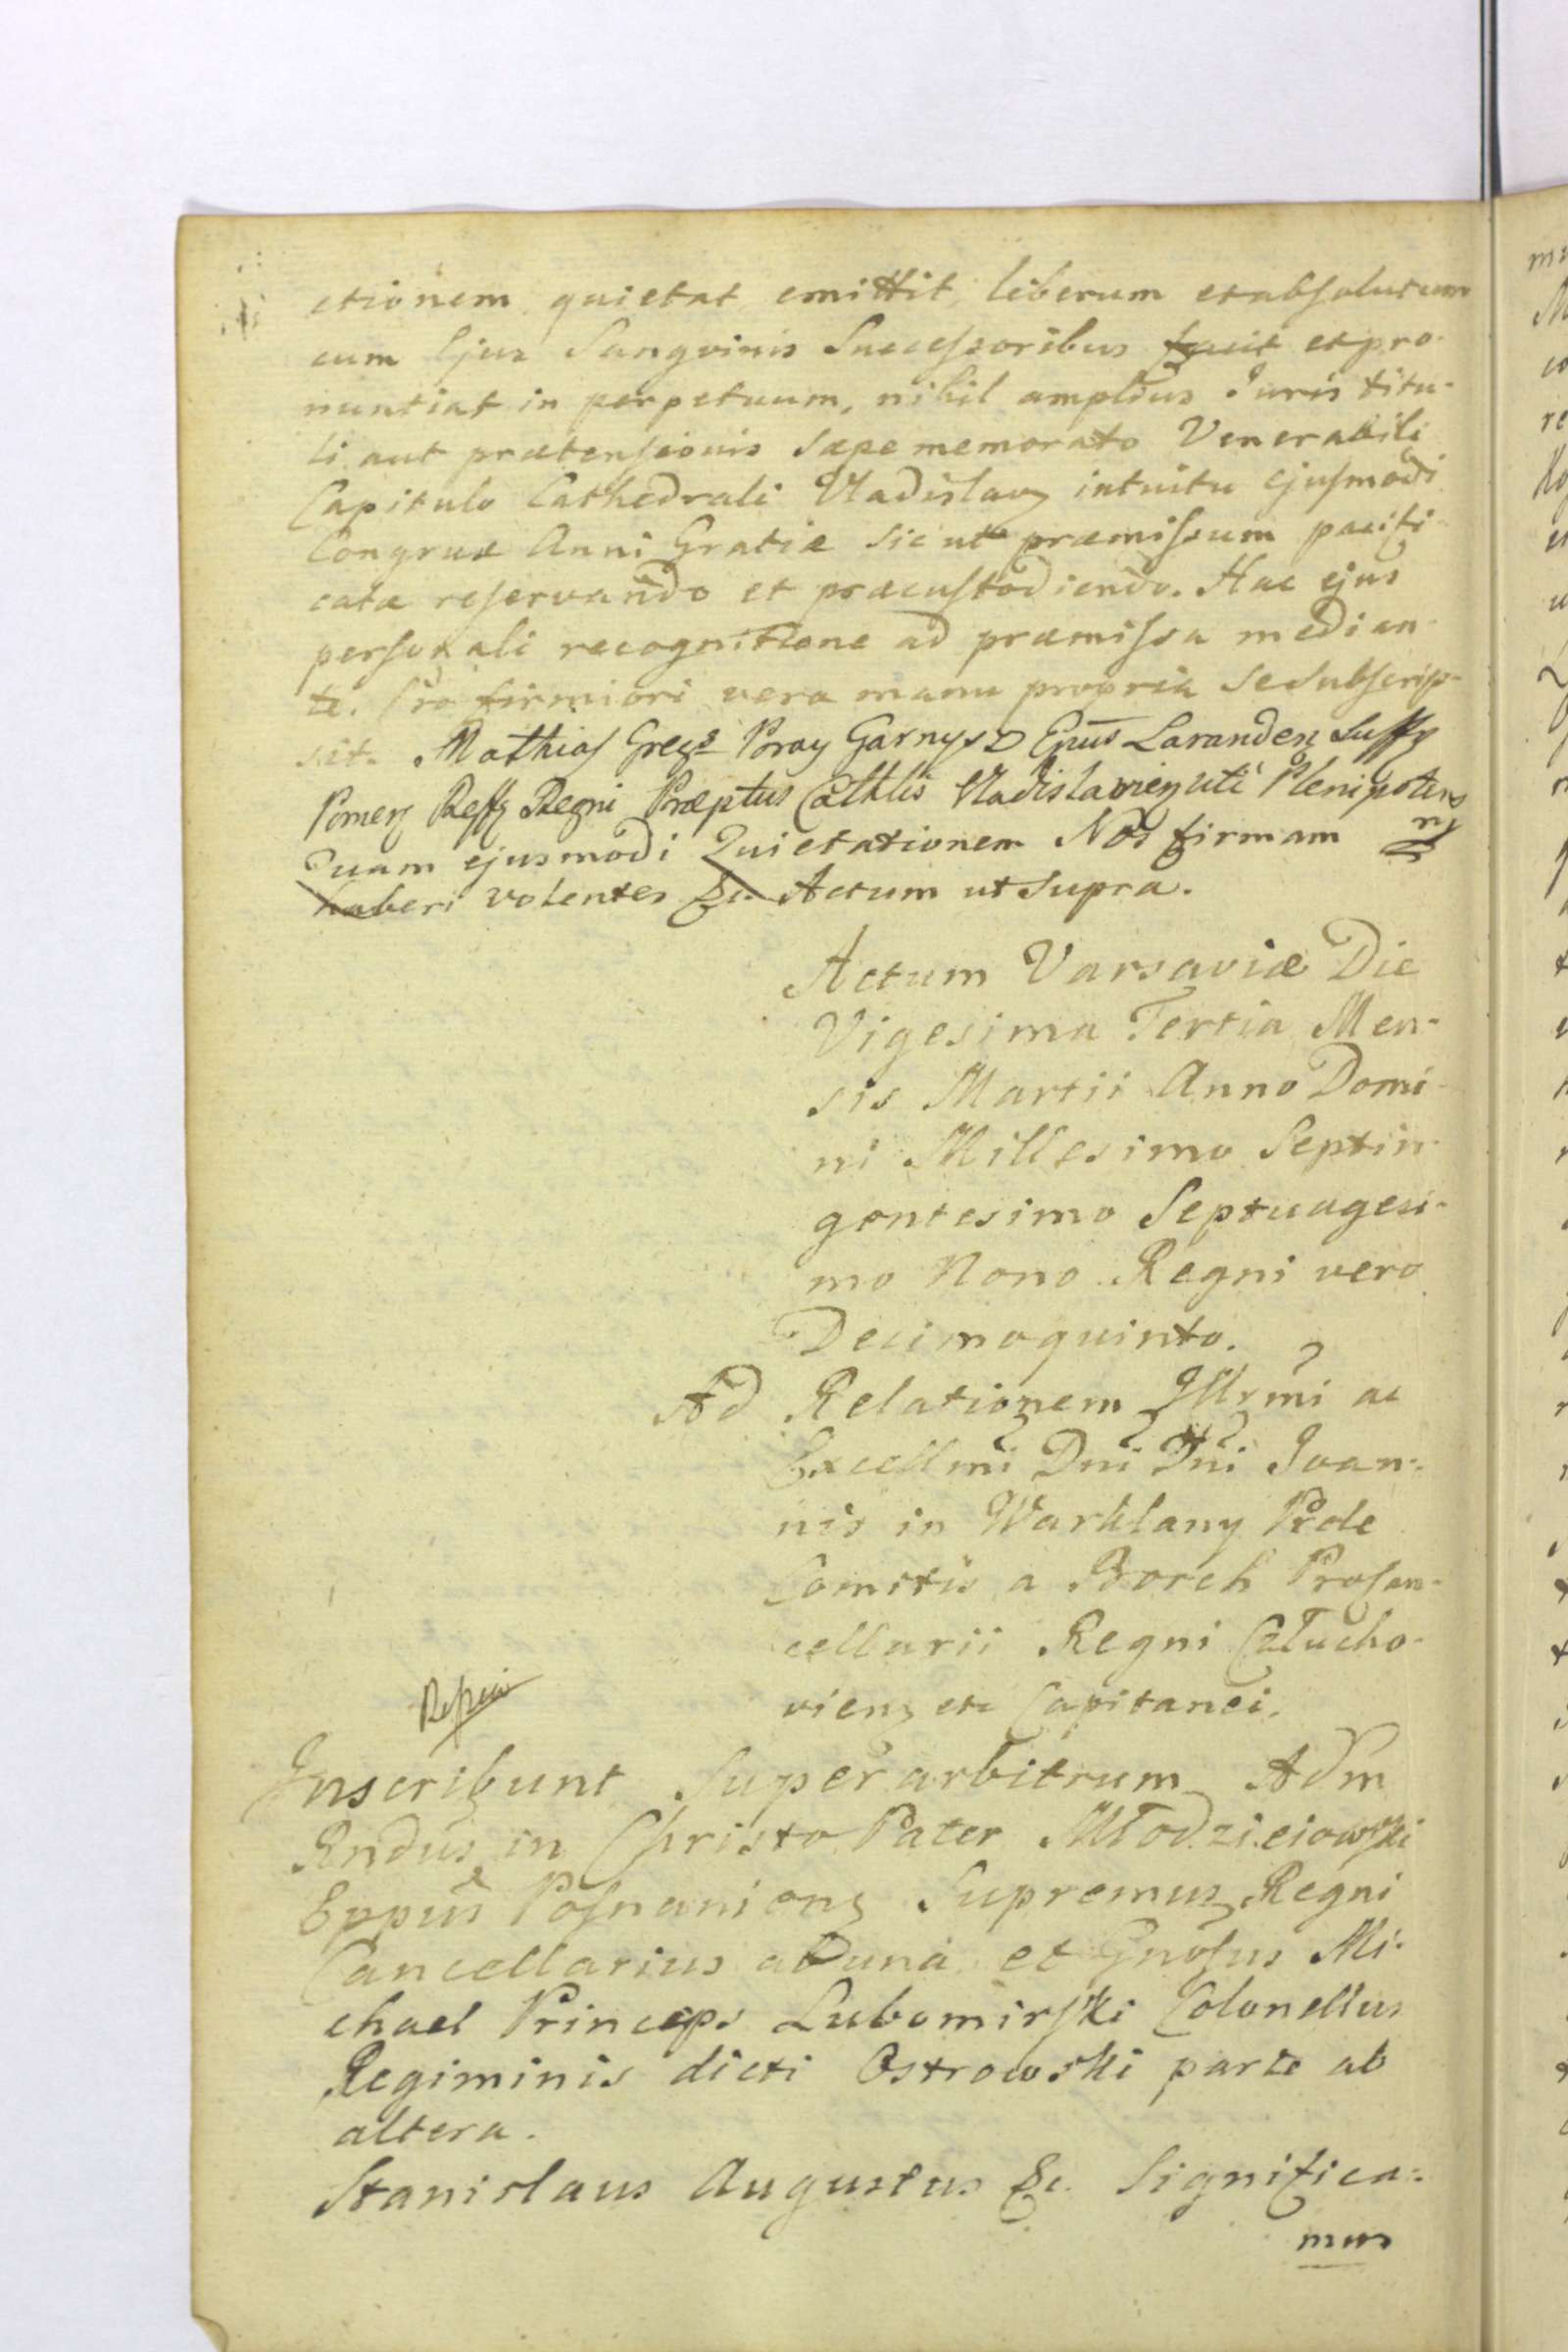 ctionem quietat emittit, liberum et absolutum
cum Ejus Sangvinis Successoribus facit et pro-
nuntiat in perpetuum, nihil amplius Juris titu-
li aut prætensionis sæpe memorato Venerabili
Capitulo Cathedrali Vladislav intuitu ejusmodi
Congruæ Anni Gratiæ sic ut præmissum pacifi-
catæ reservando et præcustodiendo. Hac ejus
personali recognitione ad præmissa median-
te. Pro firmiori vera manu propria se subscrip-
sit. Mathias Greg: Poray Garnysz Epūs Laranden Suffr
Pomer Reff Regni Præptus Cāthlis Vladislavien uti Plenipotens
Quam ejusmodi Quietationem Nos firmam
haberi volentes &c. Actum ut supra.
Actum Varsaviæ Die
Vigesima Tertia Men-
sis Martii Anno Domi-
ni Millesimo Septin-
gentesimo Septuagesi-
mo Nono Regni vero
Decimoquinto.
Ad Relationem Illrmi ac
Excellmi Dni Dni Joan-
nis in Warklany Prele
Comitis a Borch Procan-
cellarii Regni Człucho-
vien etc Capitanei.
Inscribunt Superarbitrum Adm
Rndus in Christo Pater Młodzieiowski
Eppus Posnanien Supremus Regni
Cancellarius ab una et Gnosus Mi-
chael Princeps Lubomirski Colonellus
Regiminis dicti Ostrowski parte ab
altera.
Stanislaus Augustus &c. Significa-
mus